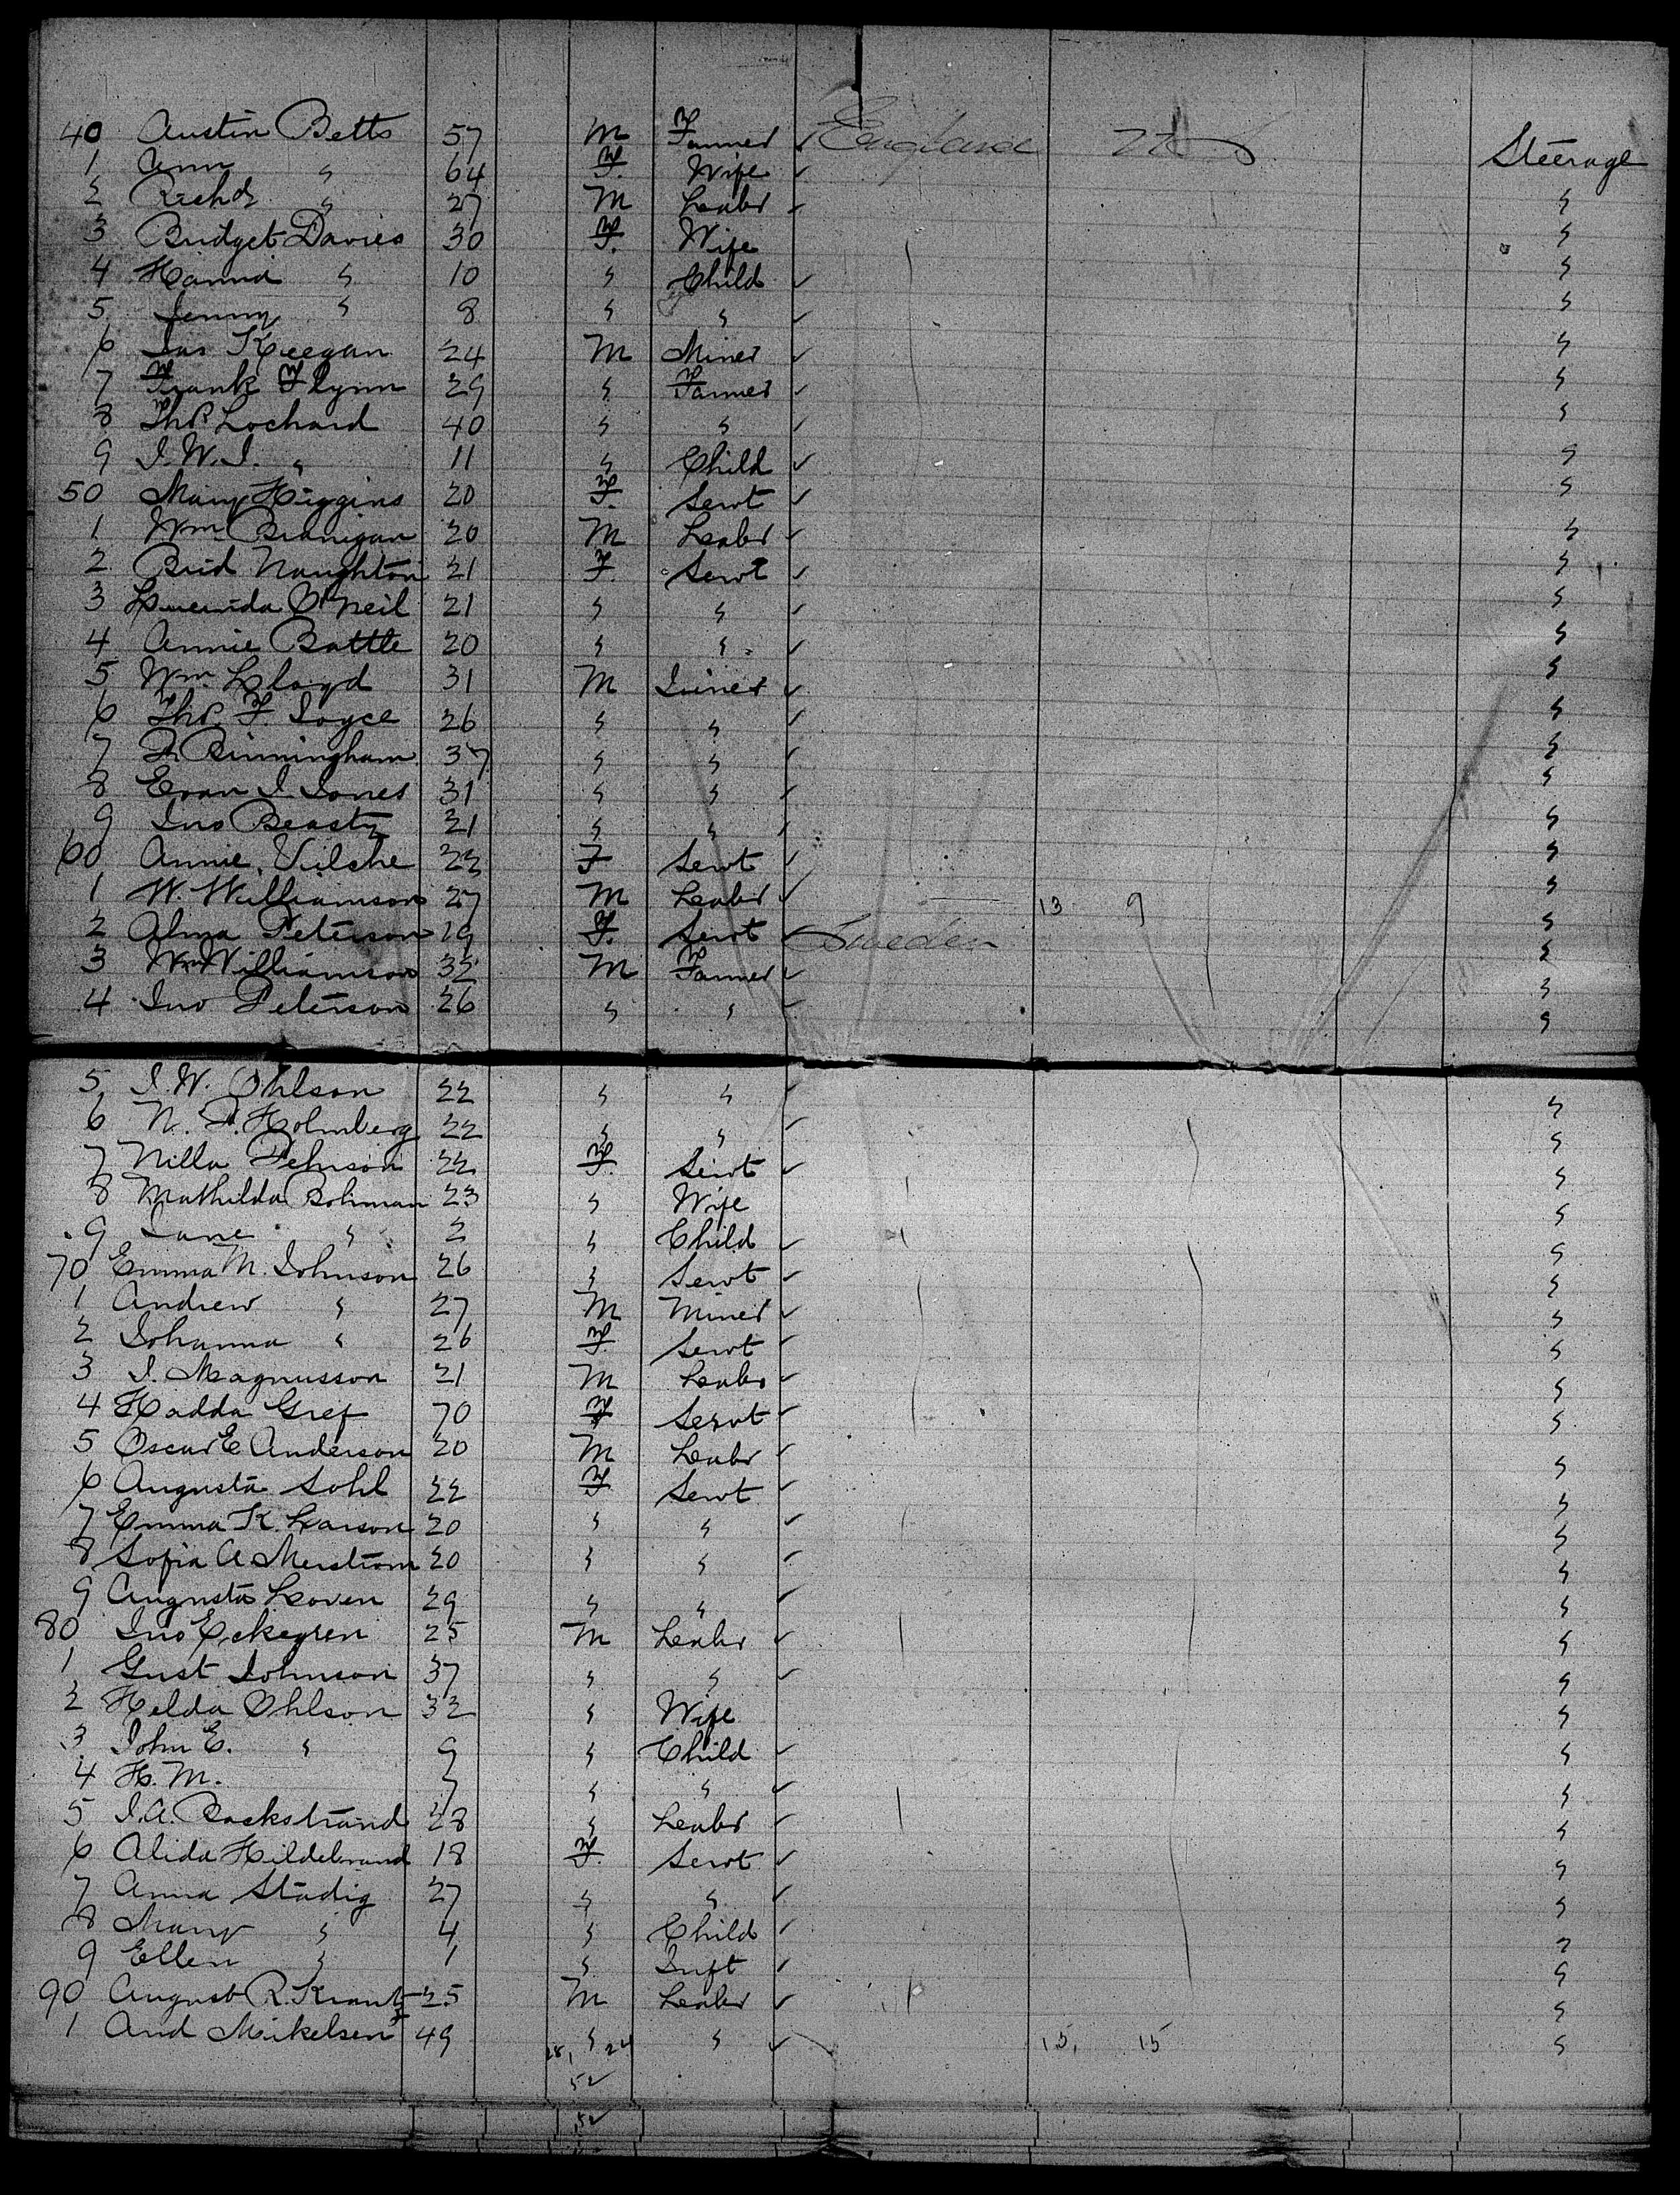 40 Austin Betts 57 M Farmer ✓ England Steerage
1 Ann " 64 F. Wife ✓ "
2 Richd " 27 M Labr ✓ "
3 Bridget Davies 30 F. Wife "
4 Hanna " 10 " Child ✓ "
5 Jenny " 8 " " ✓ "
6 Jas Keegan 24 M Miner ✓ "
7 Frank Flynn 29 " Farmer ✓ "
8 Thos Lochard 40 " " ✓ "
9 J.W.J. " 11 " Child ✓ "
50 Mary Higgins 20 F. Servt ✓ "
1 Wm Branigan 20 M Labr ✓ "
2 Brid Naughton 21 F. Servt ✓ "
3 Lucinda O'Neil 21 " " ✓ "
4 Annie Battle 20 " " ✓ "
5 Wm Lloyd 31 M Joiner ✓ "
6 Thos. F. Joyce 26 " " ✓ "
7 Birmingham 37 " " ✓ "
8 Evan J. Jones 31 " " ✓ "
9 Jno Beasty 21 " " ✓ "
60 Annie Vilche 22 F Servt ✓ "
1 W. Williamson 27 M Labr ✓ 13 9 "
2 Alma Peterson 19 F. Servt ✓ Sweden "
3 Wm Williamson 35 M Farmer ✓ "
4 Jno Peterson 26 " " ✓ "
5 J.W. Ohlson 22 " " ✓ "
6 N. P. Holmberg 22 " " ✓ "
7 Nilla Pehrson 22 F. Servt ✓ "
8 Mathilda Bohman 23 " Wife "
9 Jane " 2 " Child ✓ "
70 Emma M. Johnson 26 " Servt ✓ "
1 Andrew " 27 M Miner ✓ "
2 Johanna " 26 F. Servt ✓ "
3 J. Magnusson 21 M Labr ✓ "
4 Hadda Gref 70 F Servt ✓ "
5 Oscar E Anderson 20 M Labr ✓ "
6 Augusta Sohl 22 F Servt ✓ "
7 Emma K. Larson 20 " " ✓ "
8 Sofia A Merstrom 20 " " ✓ "
9 Augusta Loven 29 " " ✓ "
80 Jno Eckegren 25 M Labr ✓ "
1 Gust Johnson 37 " " ✓ "
2 Helda Ohlson 32 " Wife "
3 John E. " 9 " Child ✓ "
4 H. M. 7 " " ✓ "
5 J.A. Backstrand 28 " Labr ✓ "
6 Alida Hildebrand 18 F. Servt ✓ "
7 Anna Stadig 27 " " ✓ "
8 Mary " 4 " Child ✓ "
9 Ellen " 1 " Inft ✓ "
90 August R. Krantz 25 M Labr ✓ "
1 And Mikelsen 49 " " ✓ 15, 15 "
52
52